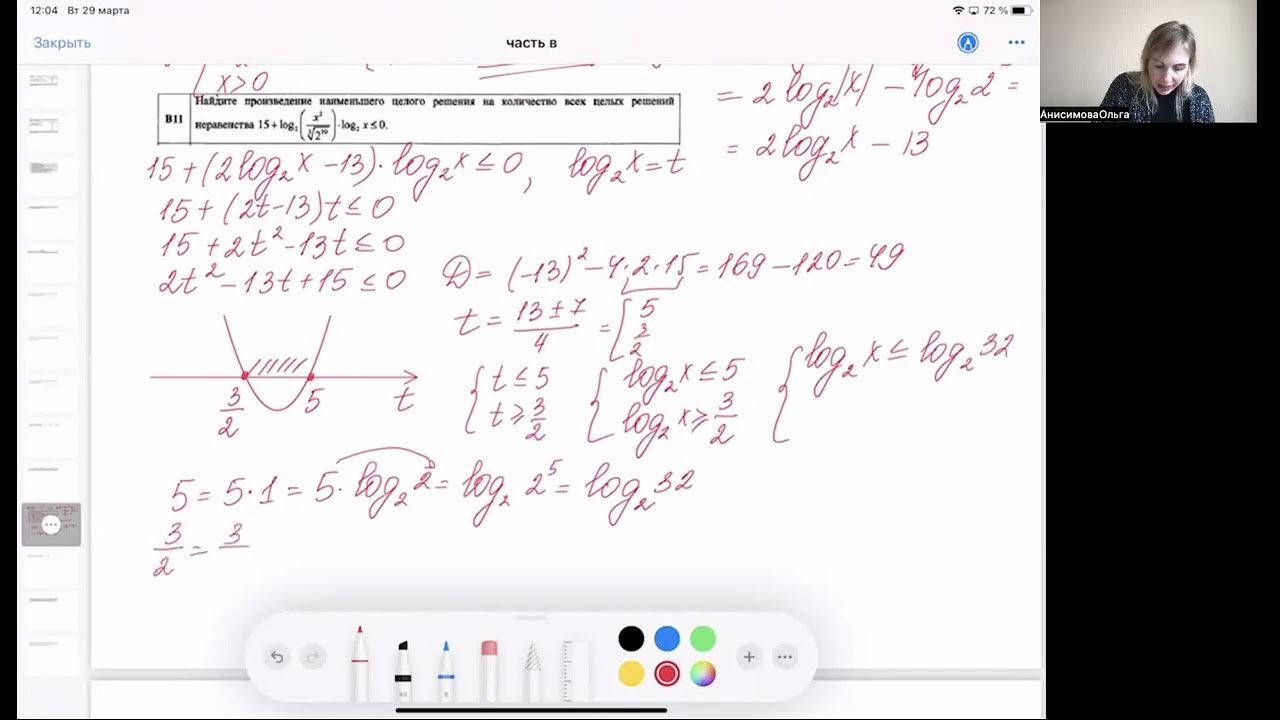 12:04 Вт 29 марта
72 %
Закрыть
часть в
АнисимоваОльга
x>0
B11
Найдите произведение наименьшего целого решения на количество всех целых решений
неравенства 15 + log₂(x²/∛2³⁹)·log₂ x ≤ 0.
= 2 log₂|x| − log₂2 =
= 2log₂x − 13
15 + (2log₂x − 13)·log₂x ≤ 0, log₂x = t
15 + (2t−13)t ≤ 0
15 + 2t² − 13t ≤ 0
2t² − 13t + 15 ≤ 0
D = (−13)² − 4·2·15 = 169 − 120 = 49
t = 13±7/4 = [5 3/2
3/2 5 t
{t ≤ 5 {log₂x ≤ 5 {log₂x ≤ log₂32
t ≥ 3/2 log₂x ≥ 3/2
5 = 5·1 = 5·log₂2 = log₂2⁵ = log₂32
3/2 = 3